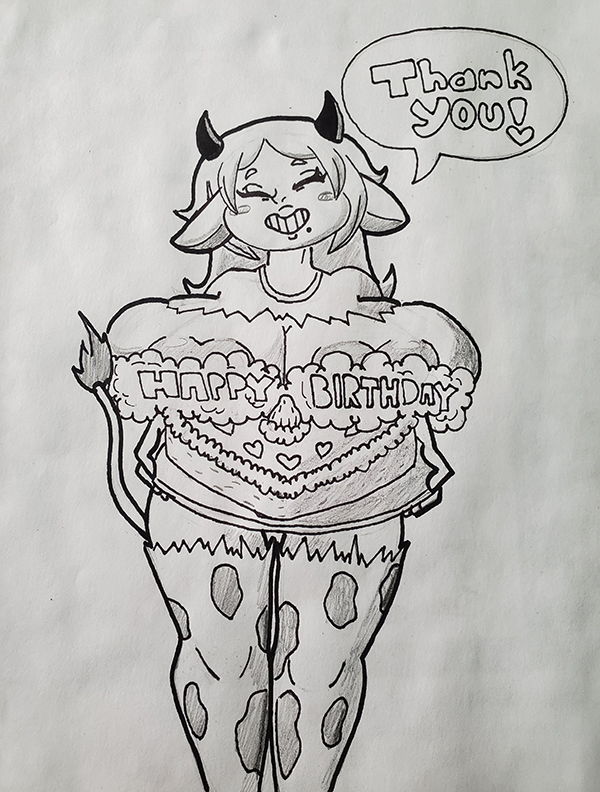 Thank
you!
HAPPY BIRTHDAY